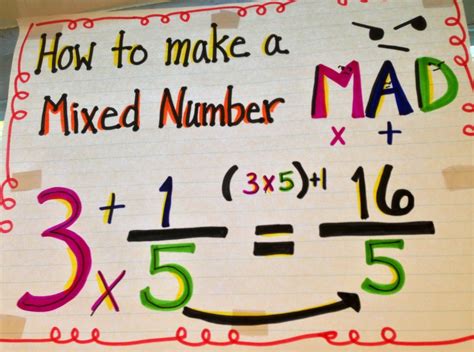 How to make a
Mixed Number
MAD
x +
3 + 1 (3x5)+1 16
x 5 = 5